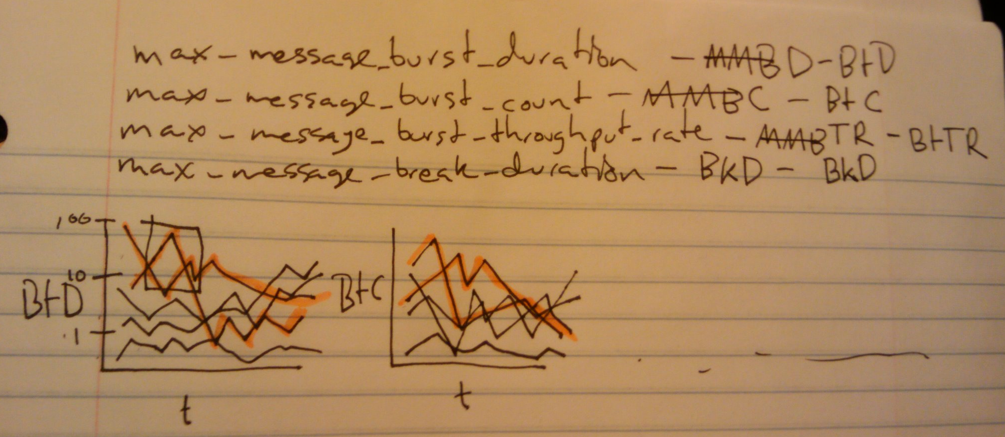 max-message_burst_duration - MMBD-BtD
max-message_burst_count - MMBC - BtC
max-message_burst-throughput_rate - MMBTR - BtTR
max-message-break-duration - BkD - BkD
100
10
BtD
1
t
BtC
t